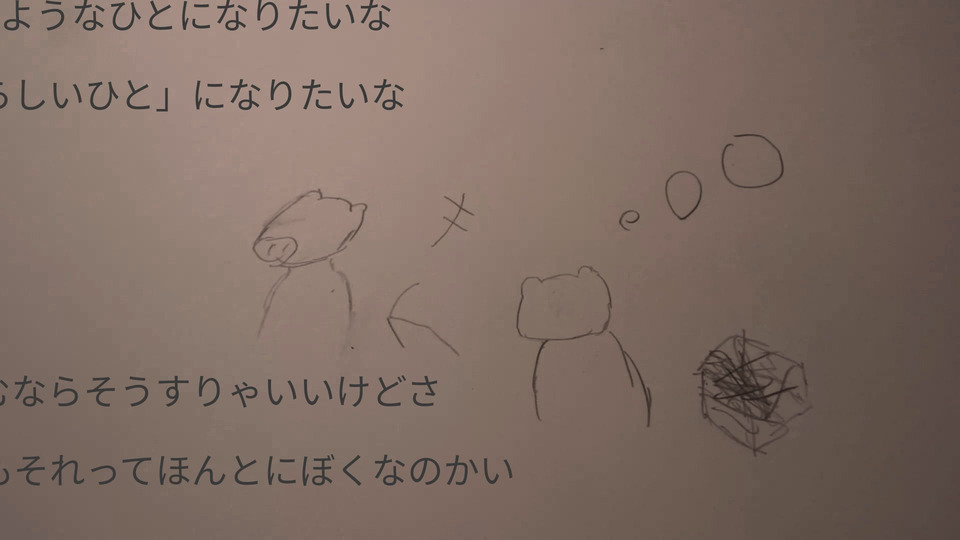 ようなひとになりたいな
らしいひと」になりたいな
ならそうすりゃいいけどさ
それってほんとにぼくなのかい